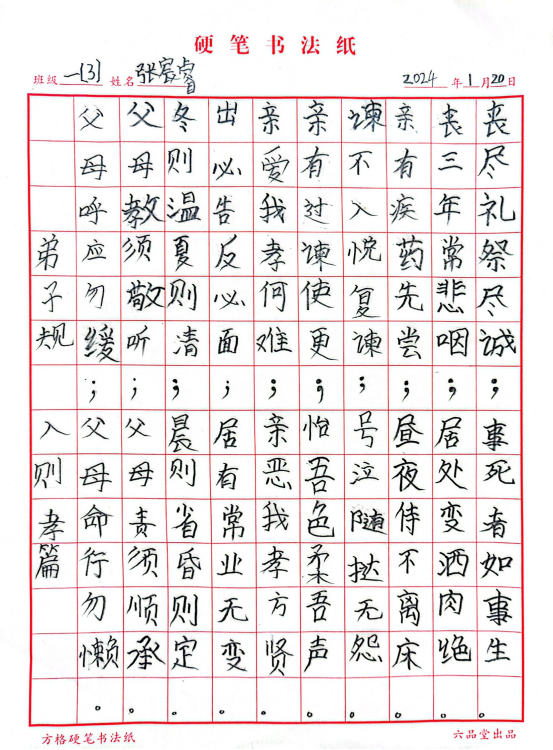 硬笔书法纸
班级 一(3) 姓名 张宸睿 2024 年 1 月 20 日
弟子规 入则孝篇
父母呼应勿缓；父母命行勿懒。
父母教须敬听；父母责须顺承。
冬则温夏则清；晨则省昏则定。
出必告反必面；居有常业无变。
亲爱我孝何难；亲恶我孝方贤。
亲有过谏使更；怡吾色柔吾声。
谏不入悦复谏；号泣随挞无怨。
亲有疾药先尝；昼夜侍不离床。
丧三年常悲咽；居处变酒肉绝。
丧尽礼祭尽诚；事死者如事生。
方格硬笔书法纸
六品堂出品